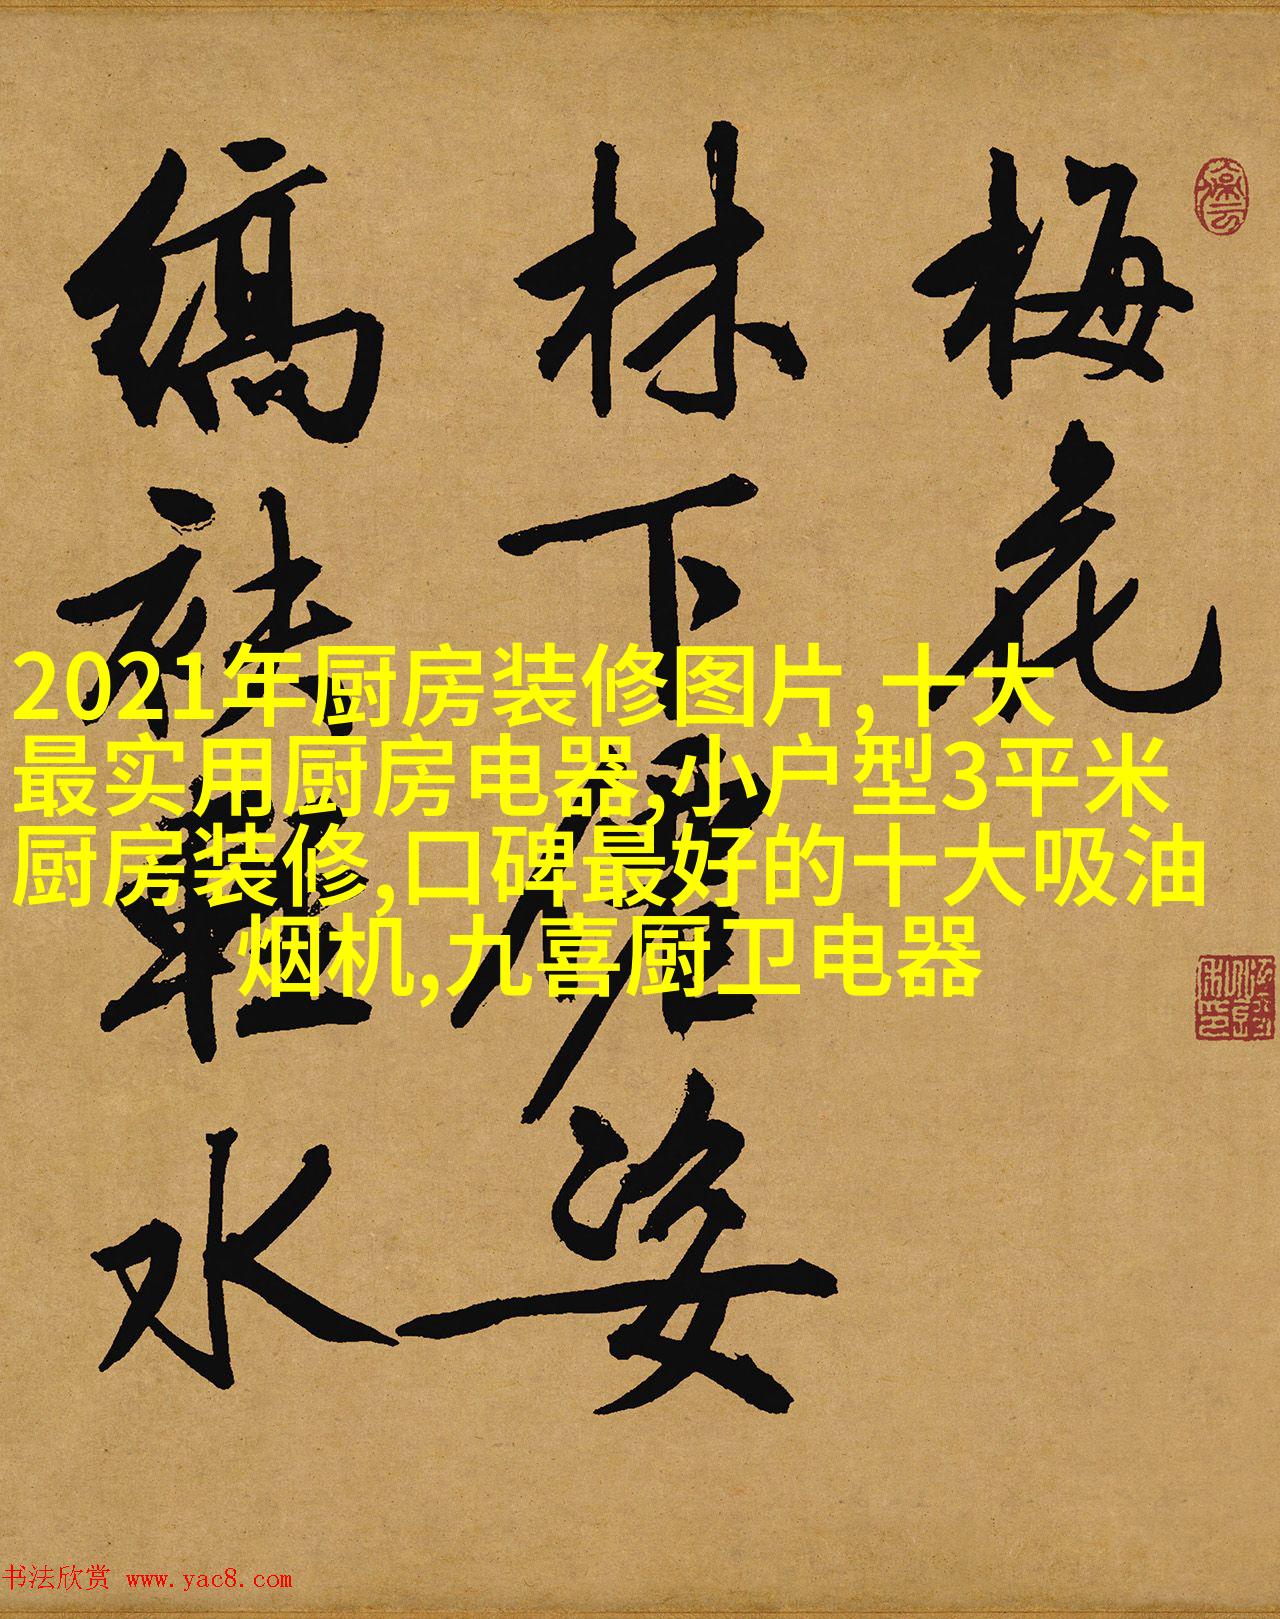 梅花
林下姿
縞袂輕水
2021年厨房装修图片,十大
最实用厨房电器,小户型3平米
厨房装修,口碑最好的十大吸油
烟机,九喜厨卫电器
书法欣赏 www.yac8.com